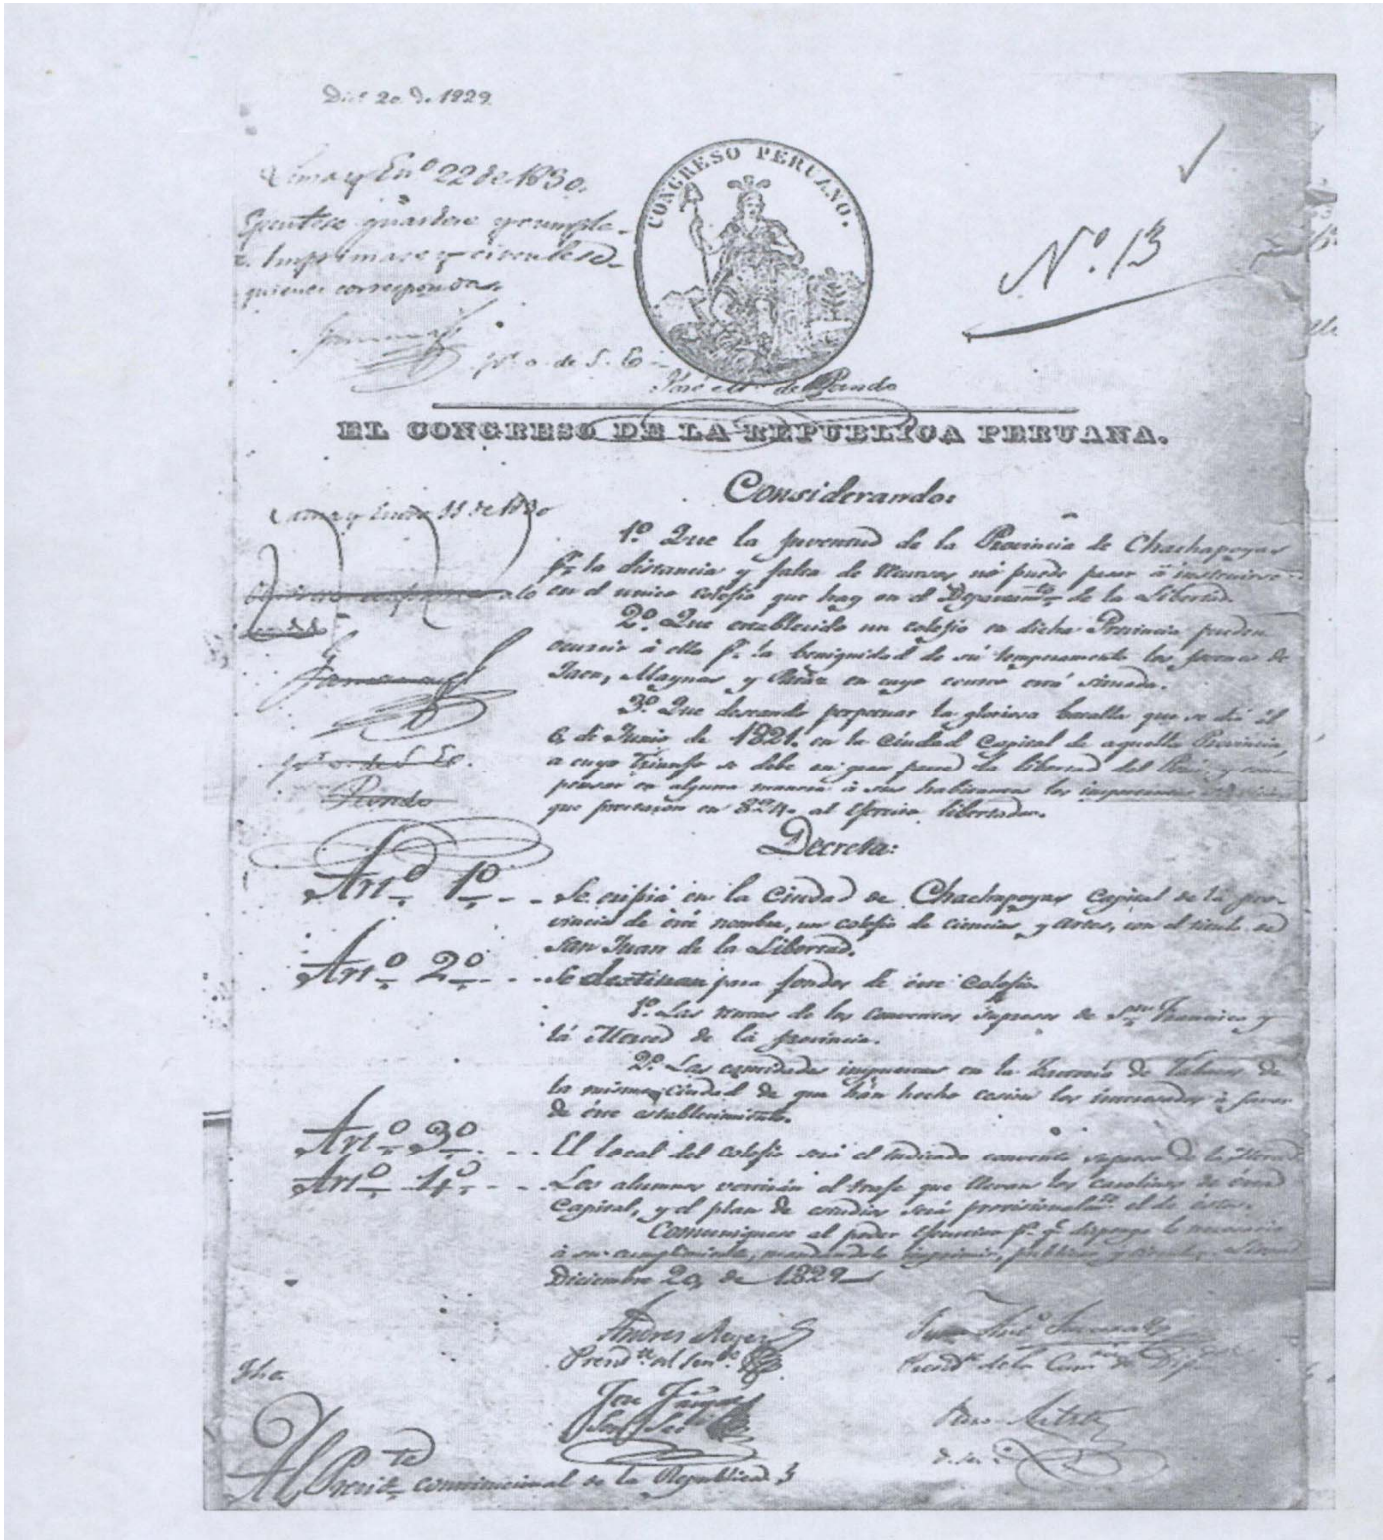 Dice 20 de 1829.
Lima y En.º 22 de 1830.
guardese y cumpla-
se. Imprimase y circulese a
quienes corresponda.
P. o. de S. E.
CONGRESO PERUANO.
Nº. 13
José M.ª de Pando
EL CONGRESO DE LA REPUBLICA PERUANA.
Considerando:
Lima y Enero 11 de 1830
1.º Que la juventud de la Provincia de Chachapoyas
p.r la distancia y falta de recursos no puede pasar á instruirse
en el unico colejio que hay en el Departam.to de la Libertad.
2.º Que establecido un colejio en dicha Provincia pueden
ocurrir á ella p.r la benignidad de su temperamento los jovenes de
Jaen, Maynas y Pataz en cuyo centro está situada.
3.º Que deseando perpetuar la gloriosa batalla que se dió el
6 de Junio de 1821. en la Ciudad Capital de aquella Provincia,
a cuyo triunfo se debe en gran parte la libertad del Perú, y
pensar en alguna manera á sus habitantes los importantes
que prestaron en 824. al Ejercito libertador.
P. o. de S. E.
Pando
Decreta:
Art.º 1.º - - Se erijirá en la Ciudad de Chachapoyas Capital de la pro-
vincia de este nombre, un colejio de ciencias y artes, con el titulo de
San Juan de la Libertad.
Art.º 2.º - - Se destinan para fondos de este colejio.
1.º Las rentas de los conventos supresos de San Francisco y
la Merced de la provincia.
2.º Las cantidades impuestas en la Factoría de Tabacos de
la misma ciudad de que hán hecho cesion los interesados á favor
de éste establecimiento.
Art.º 3.º - - El local del colejio será el indicado convento supreso de la Merced
Art.º 4.º - - Los alumnos vestirán el traje que llevan los carolinos de ésta
Capital, y el plan de estudios será provisionalm.te el de éstos.
Comuniquese al poder Ejecutivo p.a q.e disponga lo necesario
á su cumplimiento, mandandolo imprimir, publicar y circular. Lima
Diciembre 20, de 1829
Andres Reyes
Presid.te del Sen.do
Presid.te de la Cam.ra de Dip.dos
José
Sen. Sec.
D. Sec.
Fho.
Al Presid.te de la Republica